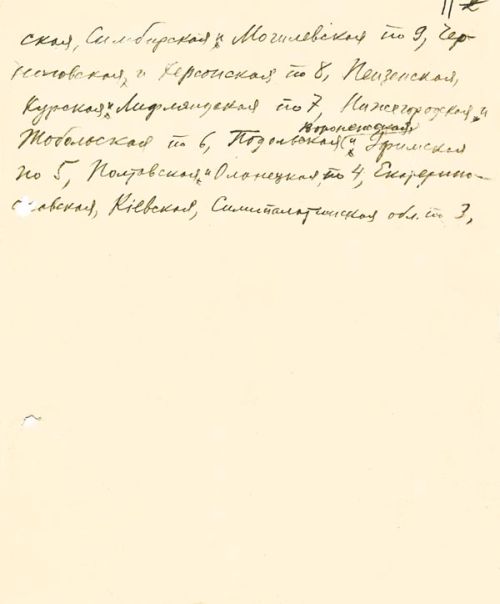 ская, Симбирская и Могилевская по 9, Чер-
ниговская и Херсонская по 8, Пензенская,
Курская и Лифляндская по 7, Нижегородская и
Тобольская по 6, Подольская, Воронежская и Уфимская
по 5, Полтавская и Олонецкая по 4, Екатерино-
славская, Кiевская, Симипалатинская обл. по 3,